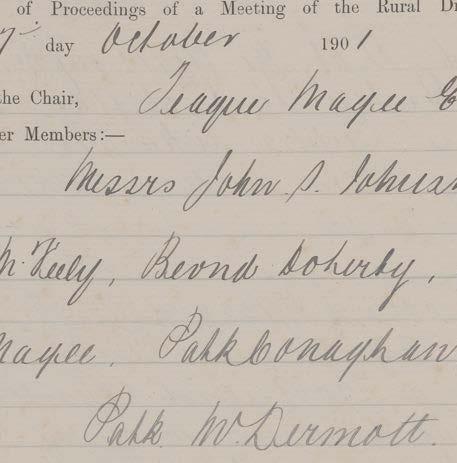 of Proceedings of a Meeting of the Rural Di
7th day October 1901
the Chair, Teague Magee E
er Members:—
Messrs John S. Johns
McKeely, Bernd Doherty,
Magee, Patk Conaghan
Patk McDermott.